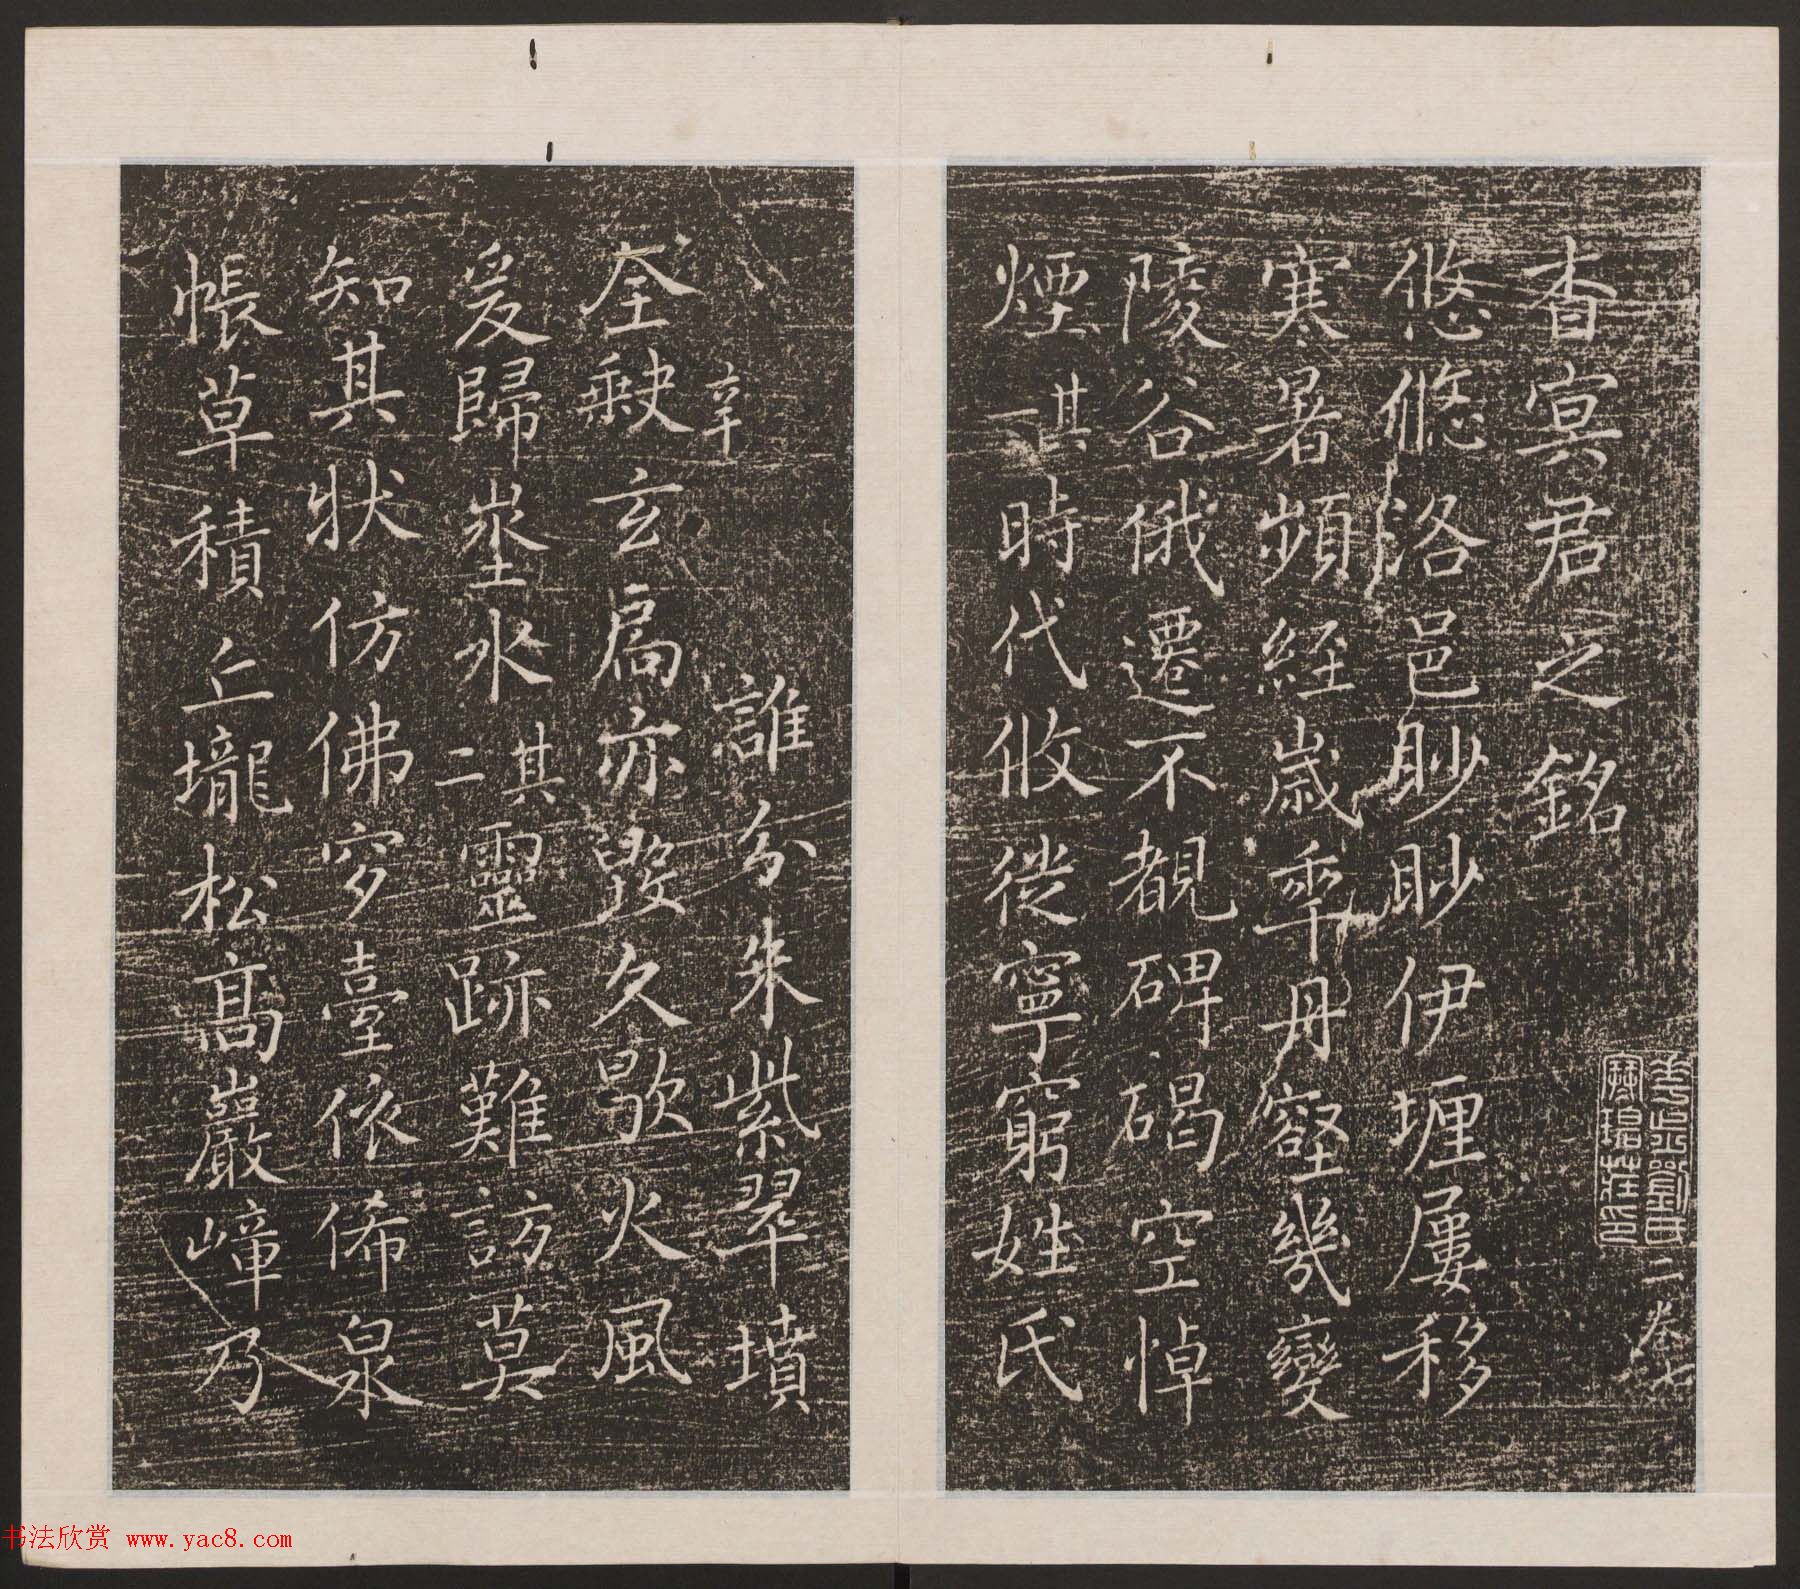 杳冥君之銘
悠悠洛邑眇眇伊壥屢移
寒暑頻經歲秊丹壑幾變
陵谷俄遷不覩碑碣空悼
煙其一時代攸徙寧窮姓氏
二 卷七
辛
誰分朱紫翠墳
全缺玄扃亦毀久歇火風
爰歸埊水其二靈跡難訪莫
知其狀仿佛穸臺依俙泉
帳草積丘壠松髙巖嶂乃
书法欣赏 www.yac8.com